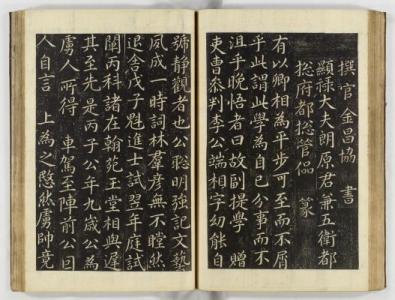 撰官金昌協 書
顯祿大夫朗原君兼五衛都
摠府都摠管偘 篆
有以卿相為平步可至而不屑
乎此謂此學為自己分事而不
沮乎晚悟者曰故副提學 贈
吏曹叅判李公端相字幼能自
號靜觀者也公聰明強記文藝
夙成一時詞林羣彦無不瞠然
退舍戊子魁進士試翌年庭試
闡丙科諸在翰苑玉堂相與遲
其至先是丙子公年九歲公為
虜人所得 車駕至陣前公曰
人自言 上為之愍然虜帥竟